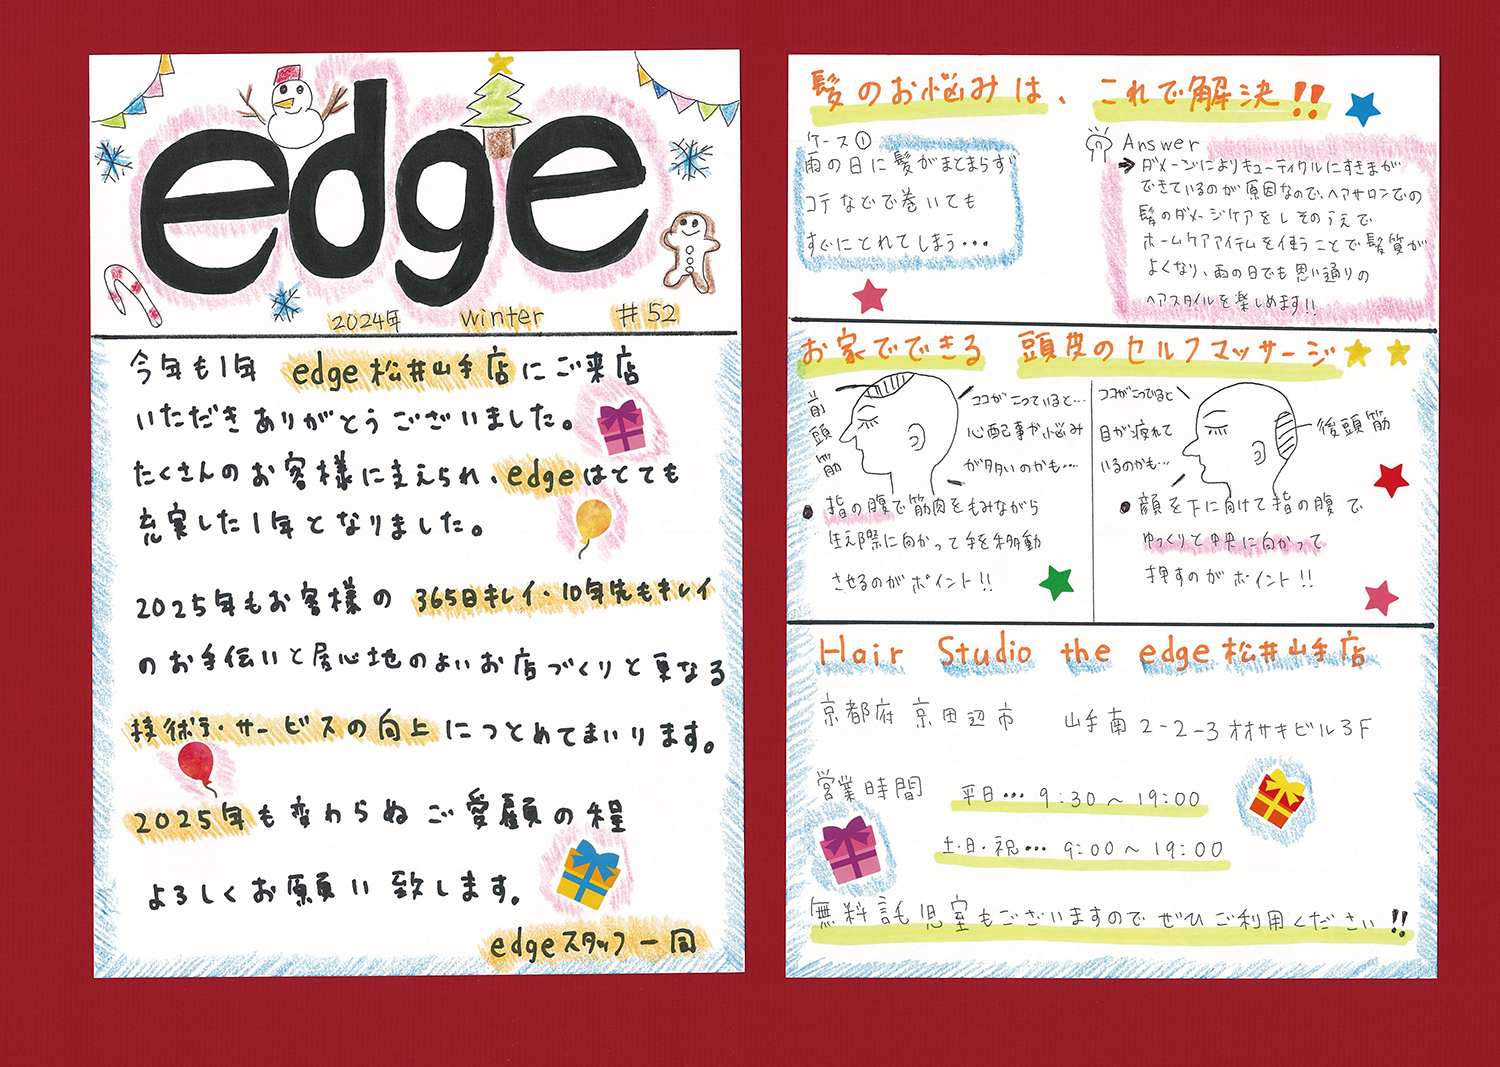 edge
2024年 winter #52
今年も1年 edge松井山手店にご来店
いただきありがとうございました。
たくさんのお客様に支えられ、edgeはとても
充実した1年となりました。
2025年もお客様の 365日キレイ・10年先もキレイ
のお手伝いと居心地のよいお店づくりと更なる
技術・サービスの向上につとめてまいります。
2025年も変わらぬご愛顧の程
よろしくお願い致します。
edgeスタッフ一同
髪のお悩みは、これで解決!!
ケース①
雨の日に髪がまとまらず
コテなどで巻いても
すぐにとれてしまう…
Answer
➔ダメージによりキューティクルにすきまが
できているのが原因なので、ヘアサロンでの
髪のダメージケアをしそのうえで
ホームケアアイテムを使うことで髪質が
よくなり、雨の日でも思い通りの
ヘアスタイルを楽しめます!!
お家でできる 頭皮のセルフマッサージ
前頭筋
ココがこっていると…
心配事や悩み
が多いのかも…
●指の腹で筋肉をもみながら
生え際に向かって手を移動
させるのがポイント!!
ココがこっていると
目が疲れて
いるのかも…
後頭筋
●顔を下に向けて指の腹で
ゆっくりと中央に向かって
押すのがポイント!!
Hair Studio the edge松井山手店
京都府京田辺市 山手南2-2-3オオサキビル3F
営業時間 平日…9:30~19:00
土・日・祝…9:00~19:00
無料託児室もございますのでぜひご利用ください!!